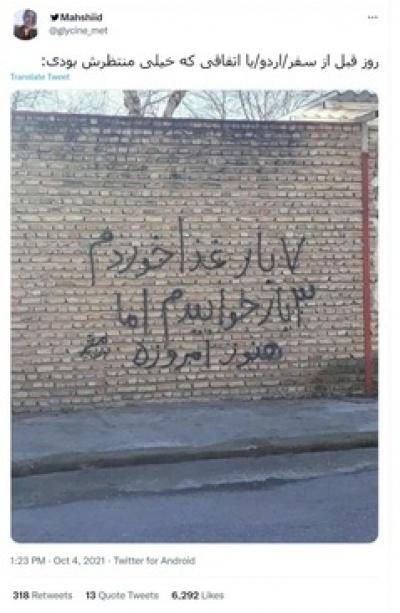 Mahshiid
@glycine_met
روز قبل از سفر/اردو/یا اتفاقی که خیلی منتظرش بودی:
Translate Tweet
۷ بار غذا خوردم
۳ بار خوابیدم اما
هنوز امروزه
1:23 PM · Oct 4, 2021 · Twitter for Android
318 Retweets 13 Quote Tweets 6,292 Likes